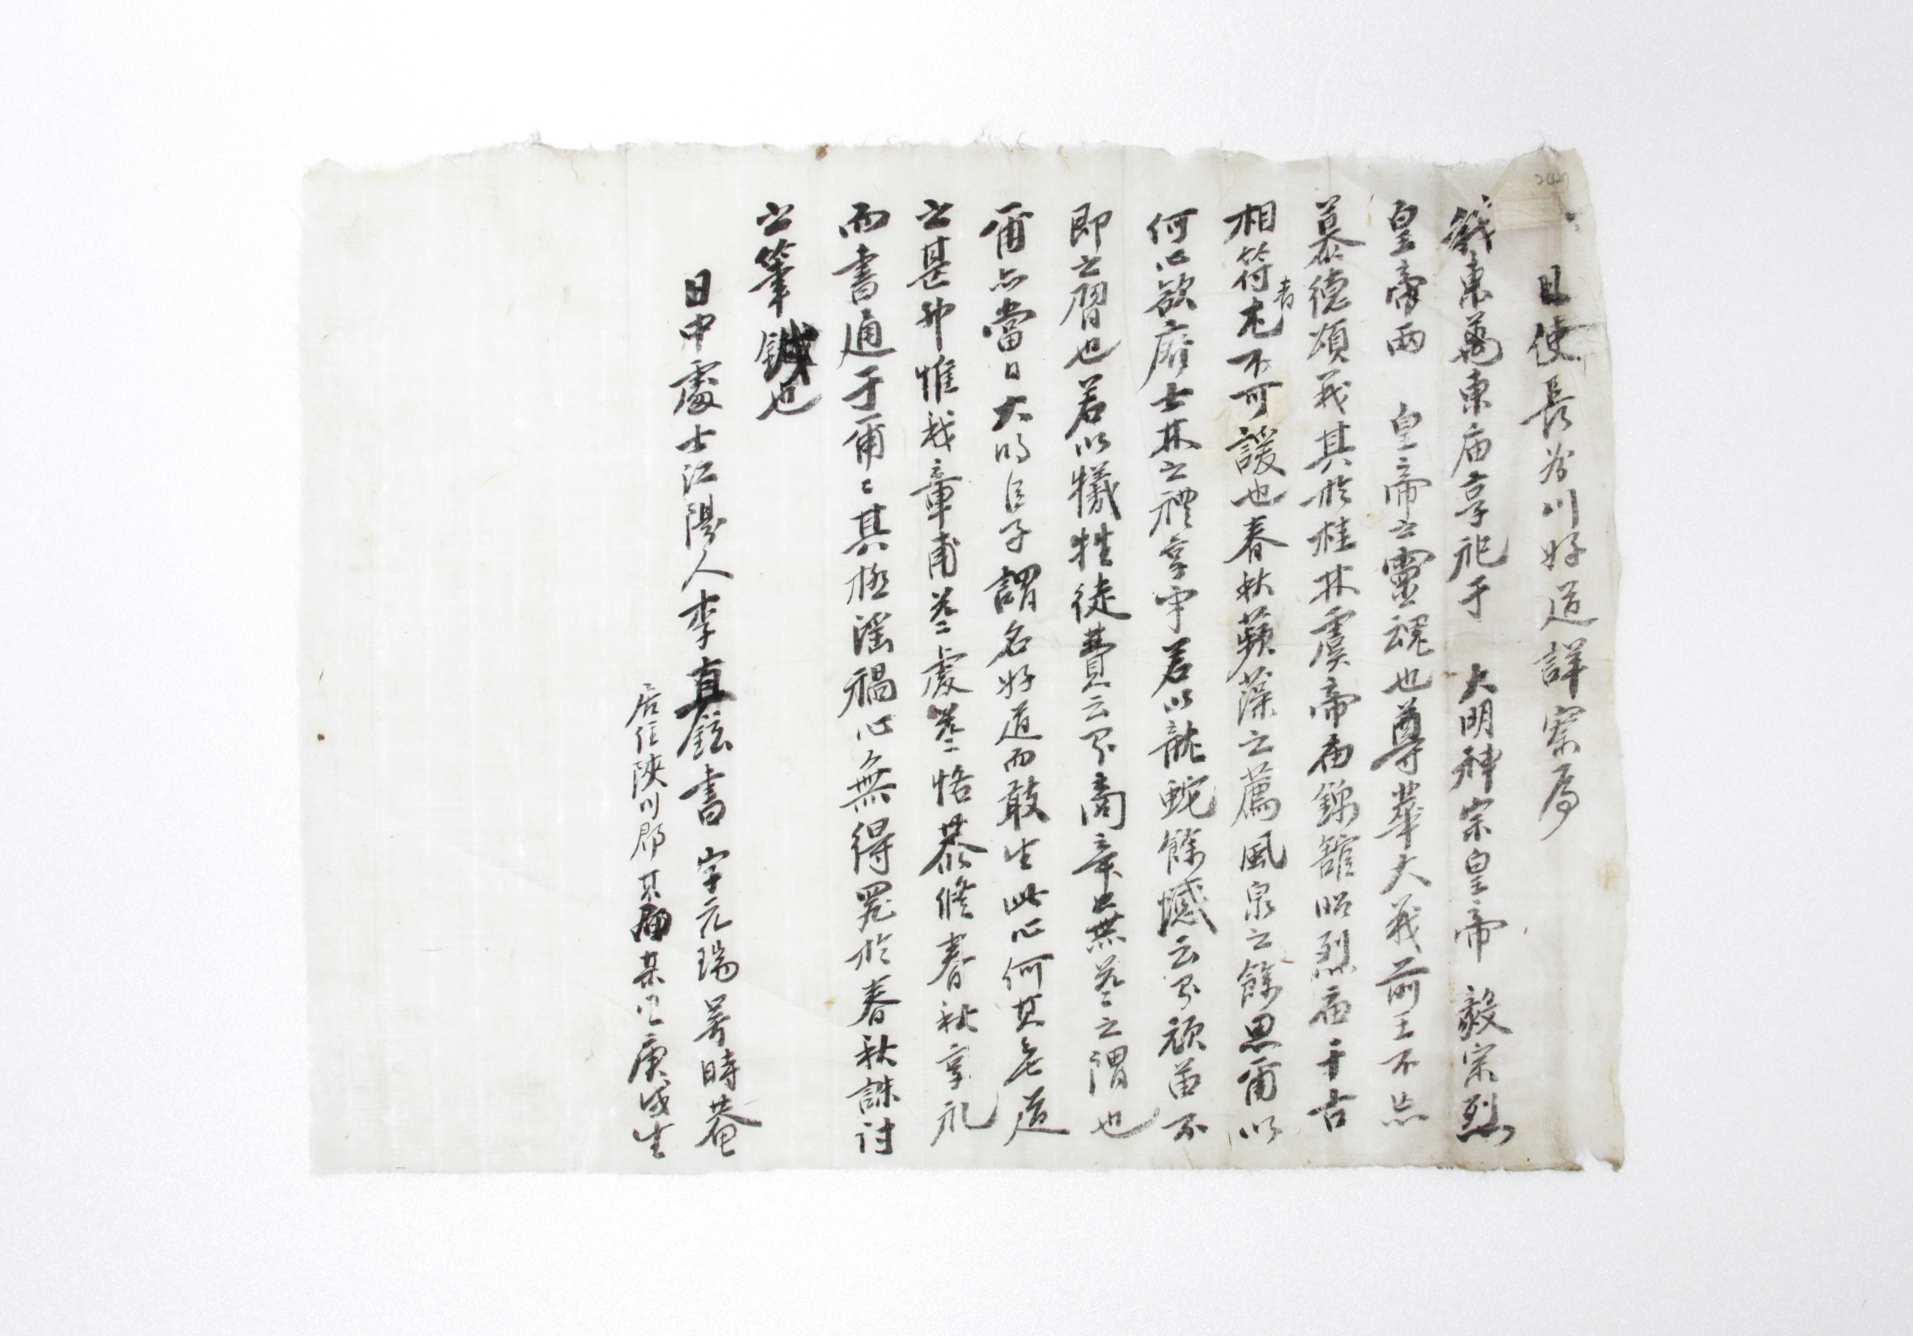 日使長谷川好道詳察焉
我東萬東庙享祀于 大明神宗皇帝 毅宗烈
皇帝兩 皇帝之靈魂也尊華大義前王不忘
慕德頌義其於桂林虞帝庙錦舘昭烈庙千古
相符者尤不可諼也春秋蘋藻之薦風泉之餘思爾以
何心欲廢士林之禮享乎若以龍蛇餘憾云爾頑苗不
即之習也若以犧牲徒費云爾商辛無益之謂也
爾亦當日大明臣子謂名好道而敢生此心何其無道
之甚耶惟我章甫益虔益恪恭修春秋享礼
而書通于爾爾其極滛禍心無得罪於春秋誅討
之筆鉞也
日中處士江陽人李直鉉書 字元瑞号時菴
居住陜川郡 某 某 庚戌生